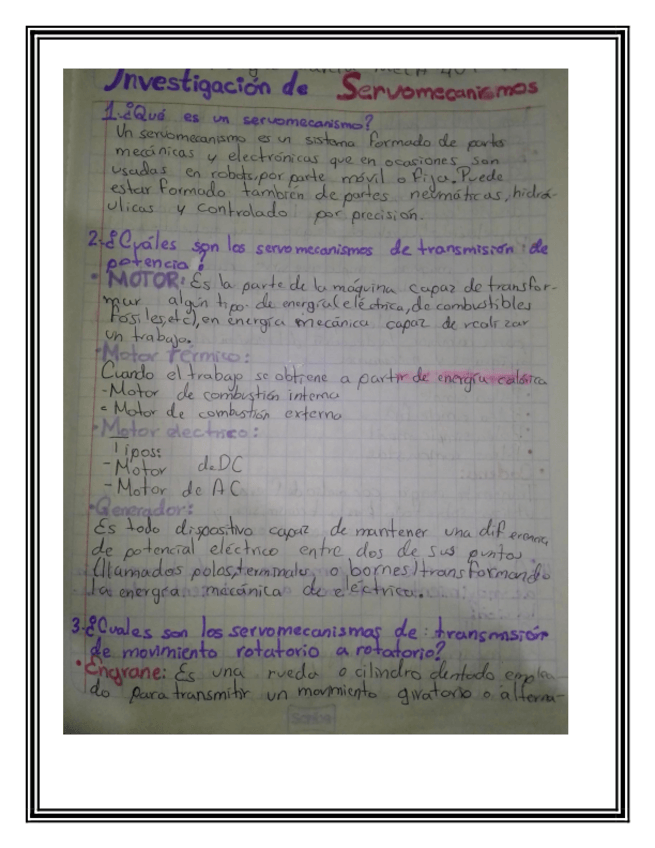 Investigación de Servomecanismos
1.¿Qué es un servomecanismo?
Un servomecanismo es un sistema formado de partes
mecánicas y electrónicas que en ocasiones son
usadas en robots, por parte móvil o fija. Puede
estar formado también de partes neumáticas, hidrá-
ulicas y controlado por precisión.
2.¿Cuáles son los servomecanismos de transmisión de
potencia?
• MOTOR: Es la parte de la máquina capaz de transfor-
mar algún tipo de energía (eléctrica, de combustibles
fósiles, etc), en energía mecánica capaz de realizar
un trabajo.
-Motor Térmico:
Cuando el trabajo se obtiene a partir de energía calórica
-Motor de combustión interna
• Motor de combustión externa
-Motor electrico:
Tipos:
-Motor de DC
-Motor de AC
•Generador:
Es todo dispositivo capaz de mantener una diferencia
de potencial eléctrico entre dos de sus puntos
(llamados polos, terminales o bornes) transformando
la energía mecánica de eléctrica.
3.¿Cuales son los servomecanismos de transmisión
de movimiento rotatorio a rotatorio?
•Engrane: Es una rueda o cilindro dentado emplea
do para transmitir un movimiento giratorio o alterna-
Scribe